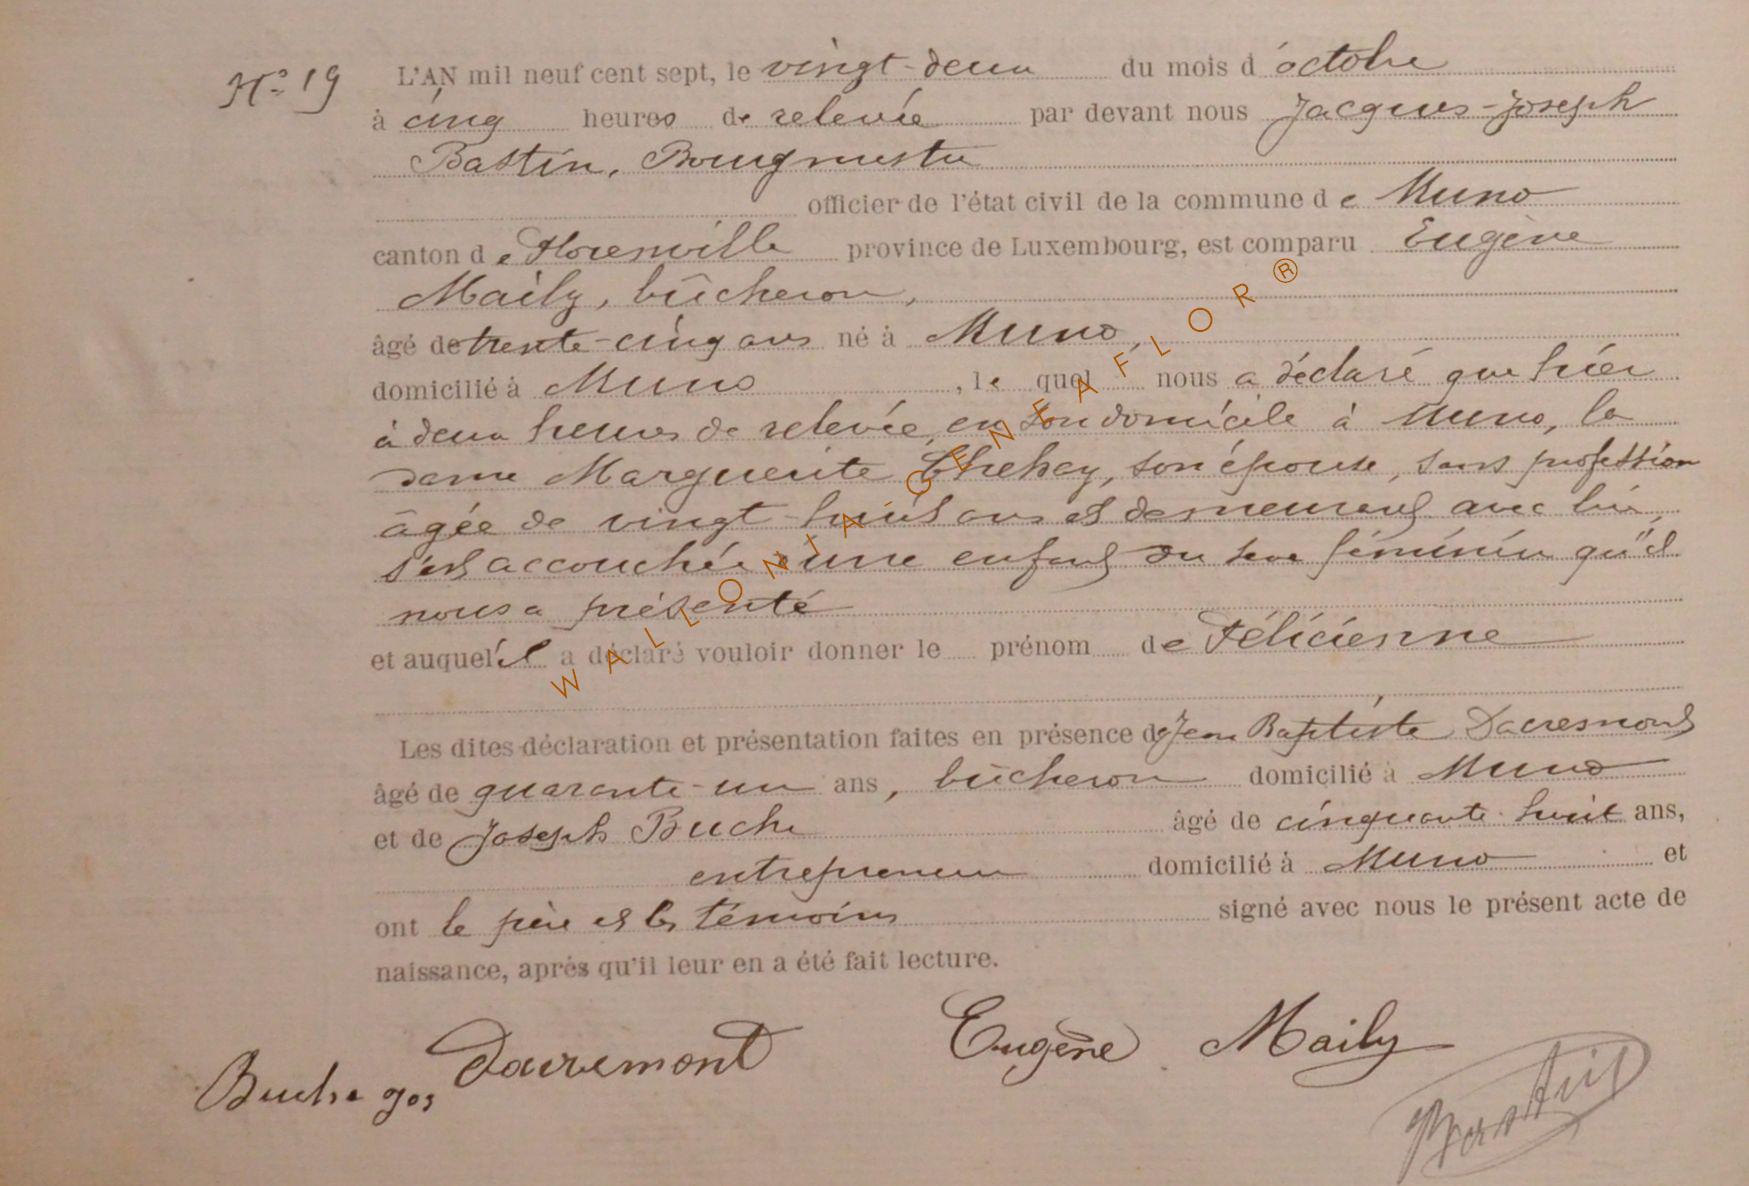 N° 19
L'AN mil neuf cent sept, le vingt-deux du mois d'octobre
à cinq heures de relevée par devant nous Jacques-Joseph
Bastin, Bourgmestre
officier de l'état civil de la commune de Muno
canton de Florenville province de Luxembourg, est comparu Eugène
Maily, bûcheron,
âgé de trente-cinq ans né à Muno,
domicilié à Muno, lequel nous a déclaré que hier
à deux heures de relevée, en son domicile à Muno, la
dame Marguerite, son épouse, sans profession
âgée de vingt-huit ans et demeurant avec lui,
s'est accouchée d'une enfant du sexe féminin qu'il
nous a présenté
et auquel il a déclaré vouloir donner le prénom de Félicienne
Les dites déclaration et présentation faites en présence de Jean Baptiste
âgé de quarante-un ans, bûcheron domicilié à Muno
et de Joseph Buche âgé de cinquante-huit ans,
entrepreneur domicilié à Muno et
ont le père et les témoins signé avec nous le présent acte de
naissance, après qu'il leur en a été fait lecture.
Eugène Maily
Buche Jos
Bastin
WALLONIA GENEAFLOR ®